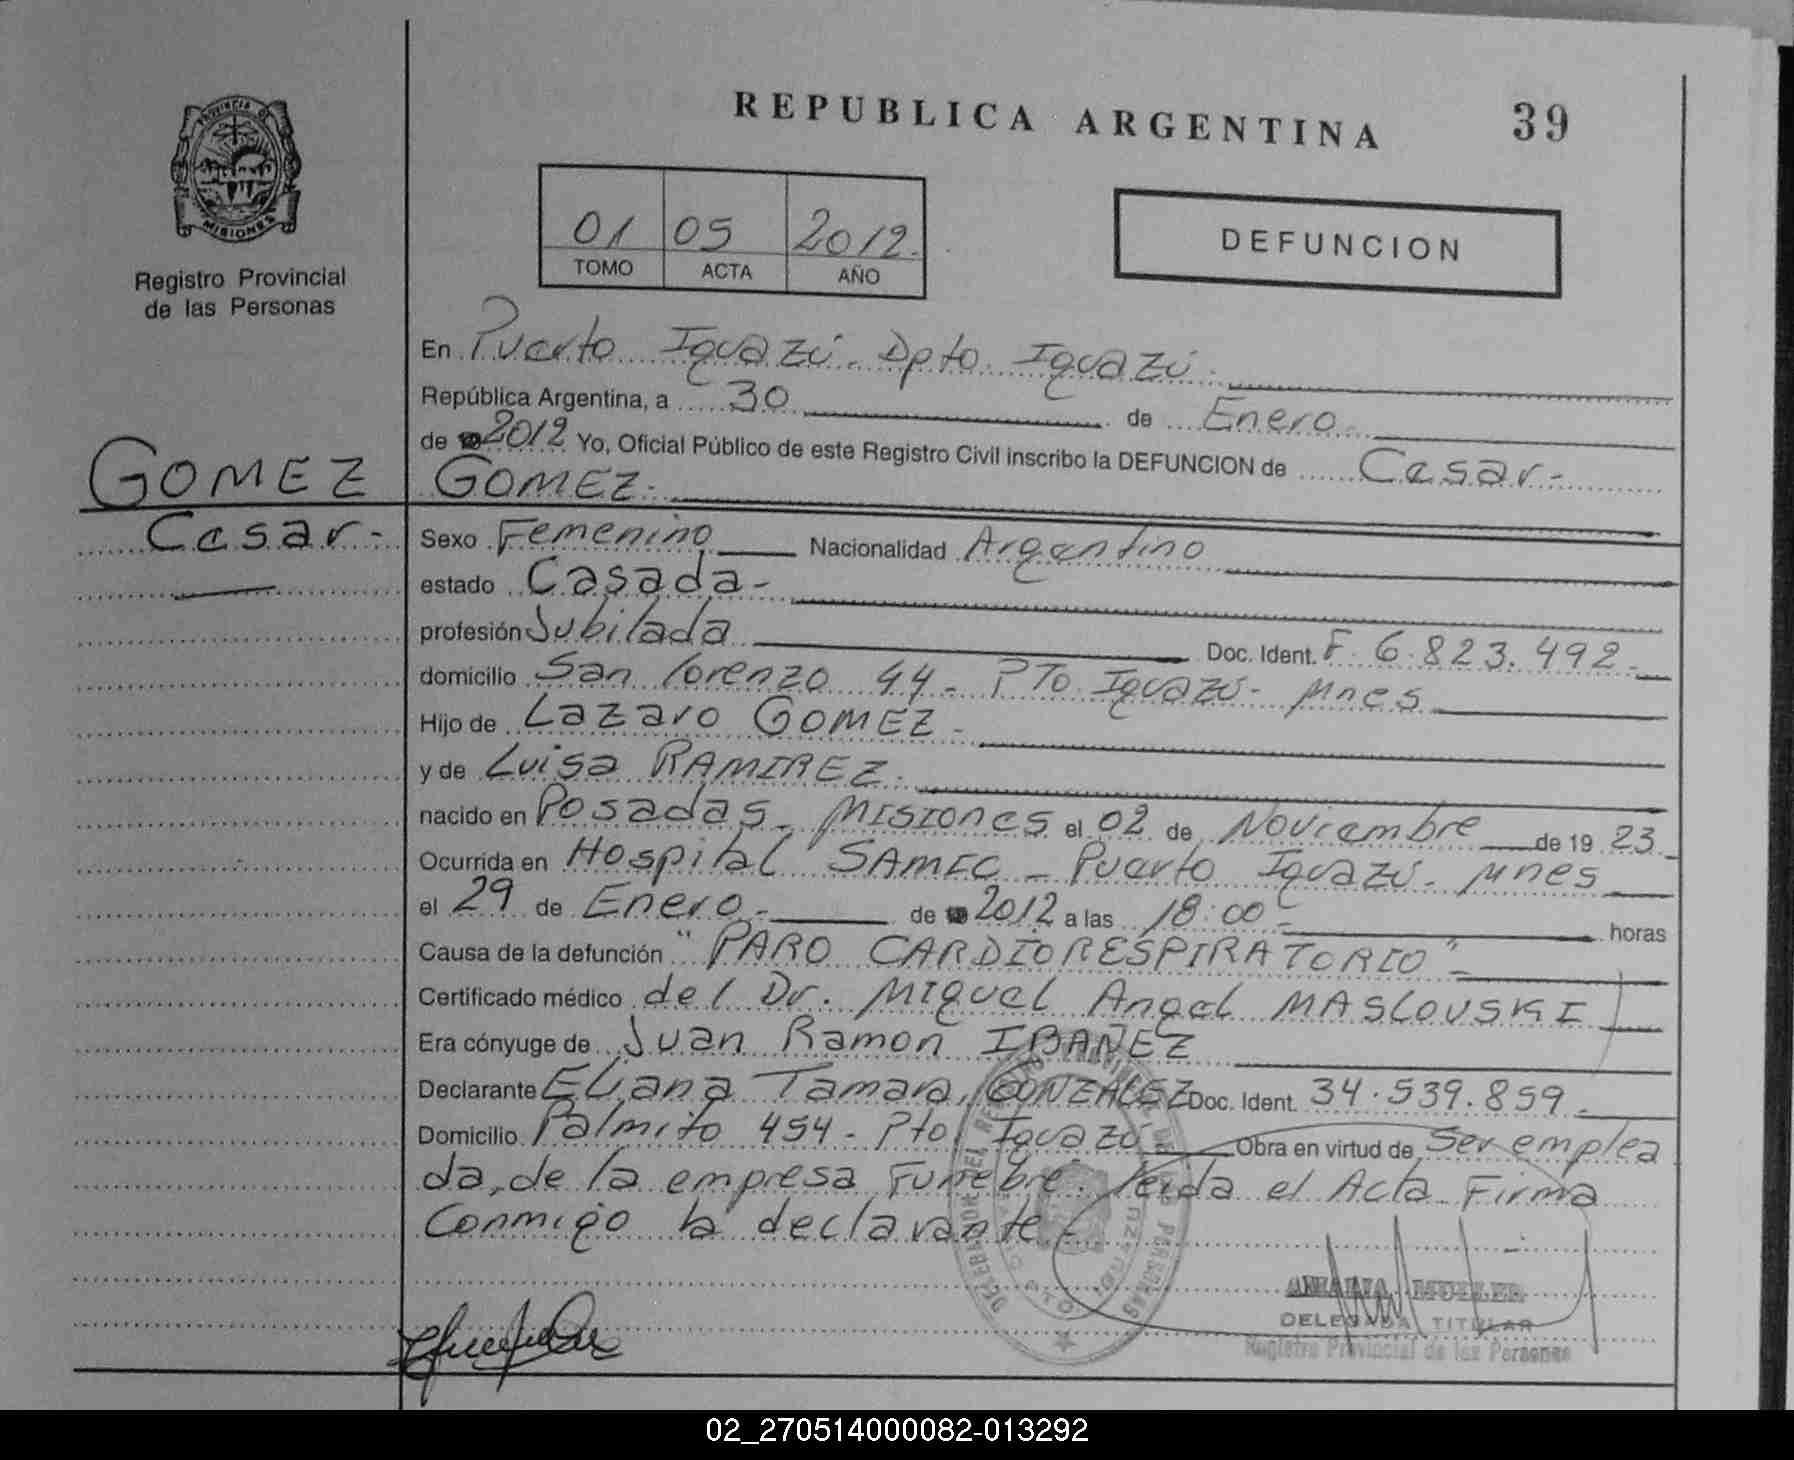 REPUBLICA ARGENTINA
39
PROVINCIA DE
MISIONES
Registro Provincial
de las Personas
01 05 2012.
TOMO ACTA AÑO
DEFUNCION
En Puerto Iguazú. Dpto. Iguazú.
República Argentina, a 30 de Enero.
de 2012 Yo, Oficial Público de este Registro Civil inscribo la DEFUNCION de Cesar-
GOMEZ
GOMEZ.
Cesar-
Sexo Femenino Nacionalidad Argentino
estado Casada-
profesión Jubilada Doc. Ident. F 6.823.492.
domicilio San Lorenzo 44- PTo Iguazú- Mnes
Hijo de Lazaro GOMEZ-
y de Luisa RAMIREZ.
nacido en Posadas- Misiones el 02 de Noviembre de 19 23
Ocurrida en Hospital SAMIC - Puerto Iguazú- Mnes
el 29 de Enero- de 2012 a las 18:00- horas
Causa de la defunción "PARO CARDIORESPIRATORIO"-
Certificado médico del Dr. Miguel Angel MASLOUSKI
Era cónyuge de Juan Ramon IBAÑEZ
Declarante Eliana Tamara, GONZALEZ Doc. Ident. 34.539.859.
Domicilio Palmito 454- Pto. Iguazú Obra en virtud de Ser emplea
da, de la empresa Funebre. leida el Acta Firma
Conmigo la declarante.-
DELEGADA TITULAR
Registro Provincial de las Personas
02_270514000082-013292